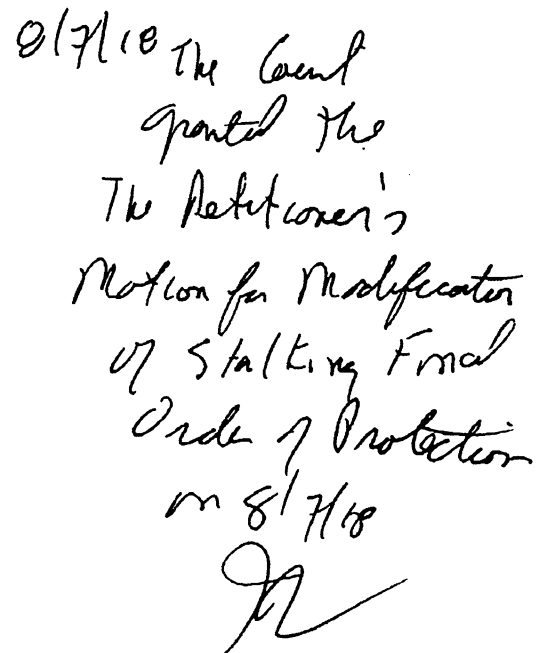 8/7/18 The Court
granted the
The Petitioner's
Motion for Modification
of Stalking Final
Order of Protection
on 8/7/18